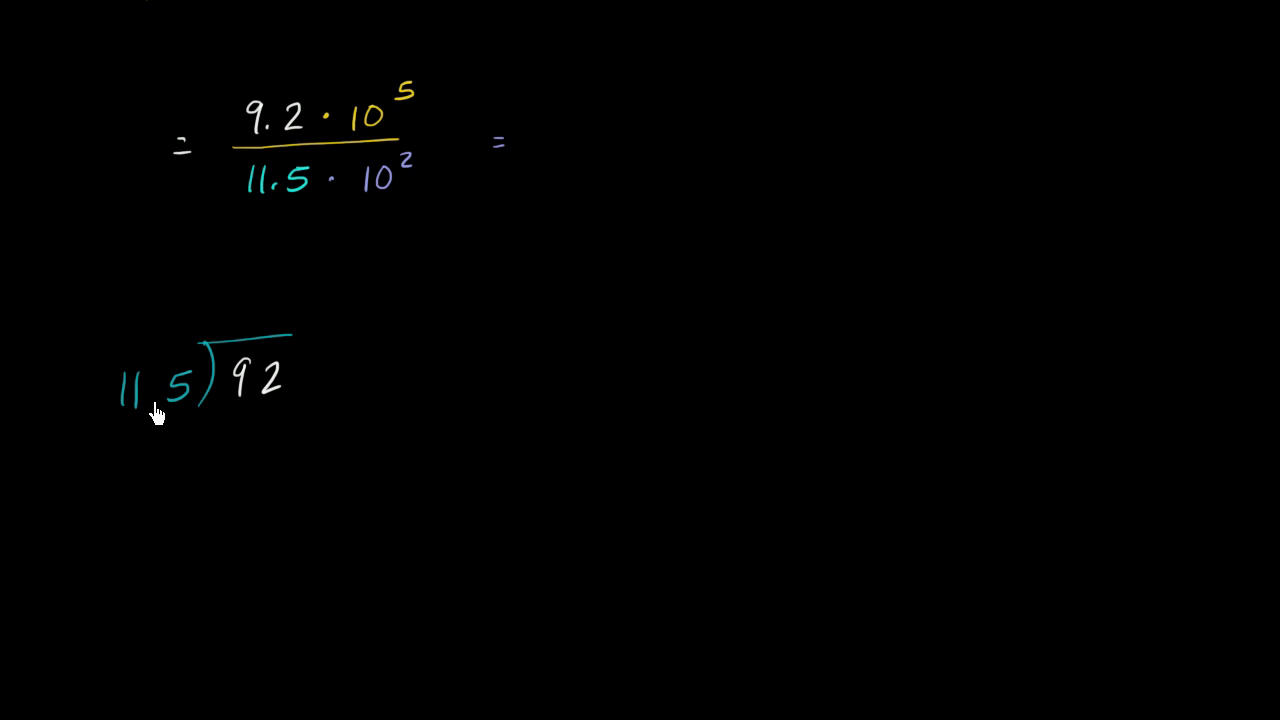 = 9.2 · 10^5 =
11.5 · 10^2
11.5)92